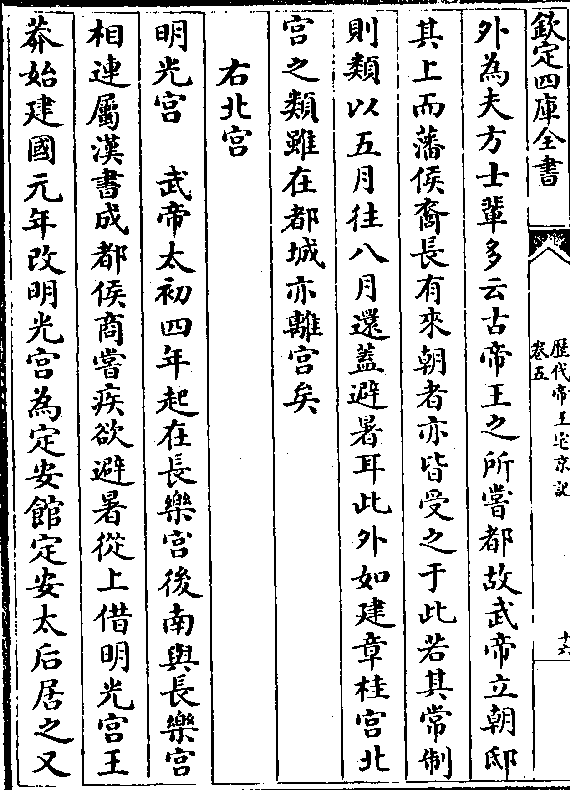 欽定四庫全書
歷代帝王宅京記
卷五
十六
外為夫方士輩多云古帝王之所嘗都故武帝立朝邸
其上而藩侯裔長有來朝者亦皆受之于此若其常制
則類以五月往八月還蓋避暑耳此外如建章桂宮北
宮之類雖在都城亦離宮矣
右北宮
明光宮　武帝太初四年起在長樂宮後南與長樂宮
相連屬漢書成都侯商嘗疾欲避暑從上借明光宮王
莽始建國元年改明光宮為定安館定安太后居之又